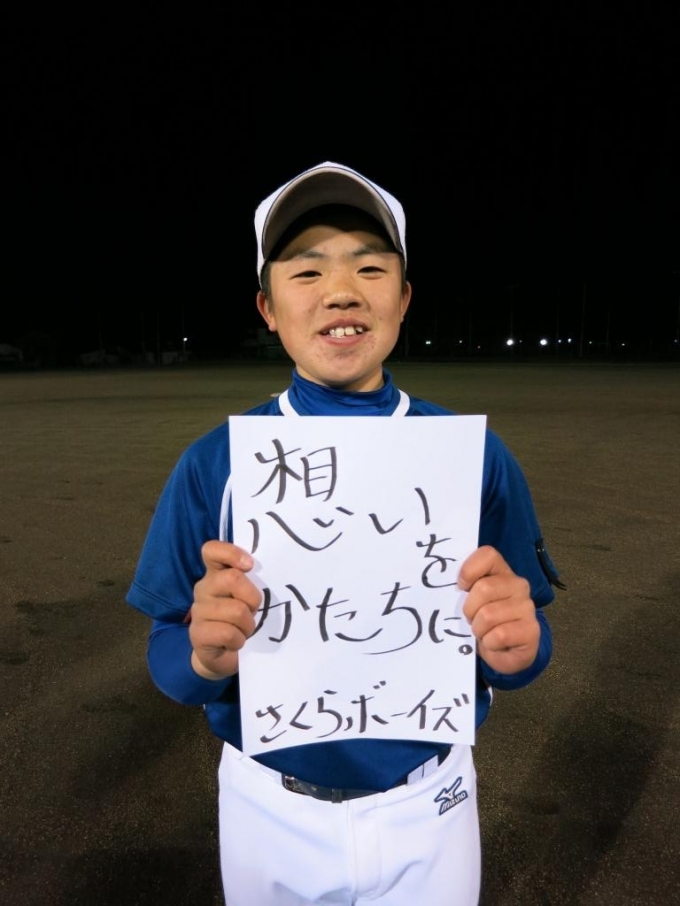 想いを
かたちに。
さくらボーイズ
mizuno